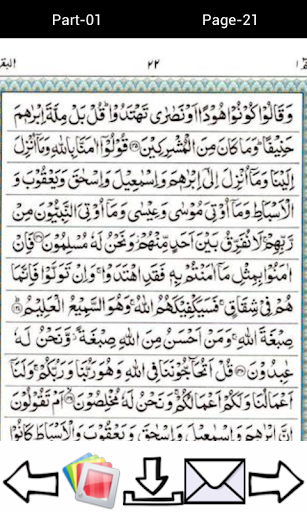 Part-01 Page-21
البقر ٢٢
وَقَالُوْا كُوْنُوْا هُوْدًا اَوْ نَصٰرٰى تَهْتَدُوْا ؕ قُلْ بَلْ مِلَّةَ اِبْرٰهٖمَ
حَنِيْفًا ؕ وَمَا كَانَ مِنَ الْمُشْرِكِيْنَ ﴿۱۳۵﴾ قُوْلُوْۤا اٰمَنَّا بِاللّٰهِ وَمَاۤ اُنْزِلَ
اِلَيْنَا وَمَاۤ اُنْزِلَ اِلٰٓى اِبْرٰهٖمَ وَاِسْمٰعِيْلَ وَاِسْحٰقَ وَيَعْقُوْبَ وَ
الْاَسْبَاطِ وَمَاۤ اُوْتِيَ مُوْسٰى وَعِيْسٰى وَمَاۤ اُوْتِيَ النَّبِيُّوْنَ مِنْ
رَّبِّهِمْ ۚ لَا نُفَرِّقُ بَيْنَ اَحَدٍ مِّنْهُمْ ۖ وَنَحْنُ لَهٗ مُسْلِمُوْنَ ﴿۱۳۶﴾ فَاِنْ
اٰمَنُوْا بِمِثْلِ مَاۤ اٰمَنْتُمْ بِهٖ فَقَدِ اهْتَدَوْا ۚ وَاِنْ تَوَلَّوْا فَاِنَّمَا
هُمْ فِيْ شِقَاقٍ ۚ فَسَيَكْفِيْكَهُمُ اللّٰهُ ۚ وَهُوَ السَّمِيْعُ الْعَلِيْمُ ﴿۱۳۷﴾
صِبْغَةَ اللّٰهِ ۚ وَمَنْ اَحْسَنُ مِنَ اللّٰهِ صِبْغَةً ۖ وَّنَحْنُ لَهٗ
عٰبِدُوْنَ ﴿۱۳۸﴾ قُلْ اَتُحَآجُّوْنَنَا فِي اللّٰهِ وَهُوَ رَبُّنَا وَرَبُّكُمْ ۚ وَلَنَاۤ
اَعْمَالُنَا وَلَكُمْ اَعْمَالُكُمْ ۚ وَنَحْنُ لَهٗ مُخْلِصُوْنَ ﴿۱۳۹﴾ اَمْ تَقُوْلُوْنَ
اِنَّ اِبْرٰهٖمَ وَاِسْمٰعِيْلَ وَاِسْحٰقَ وَيَعْقُوْبَ وَالْاَسْبَاطَ كَانُوْا